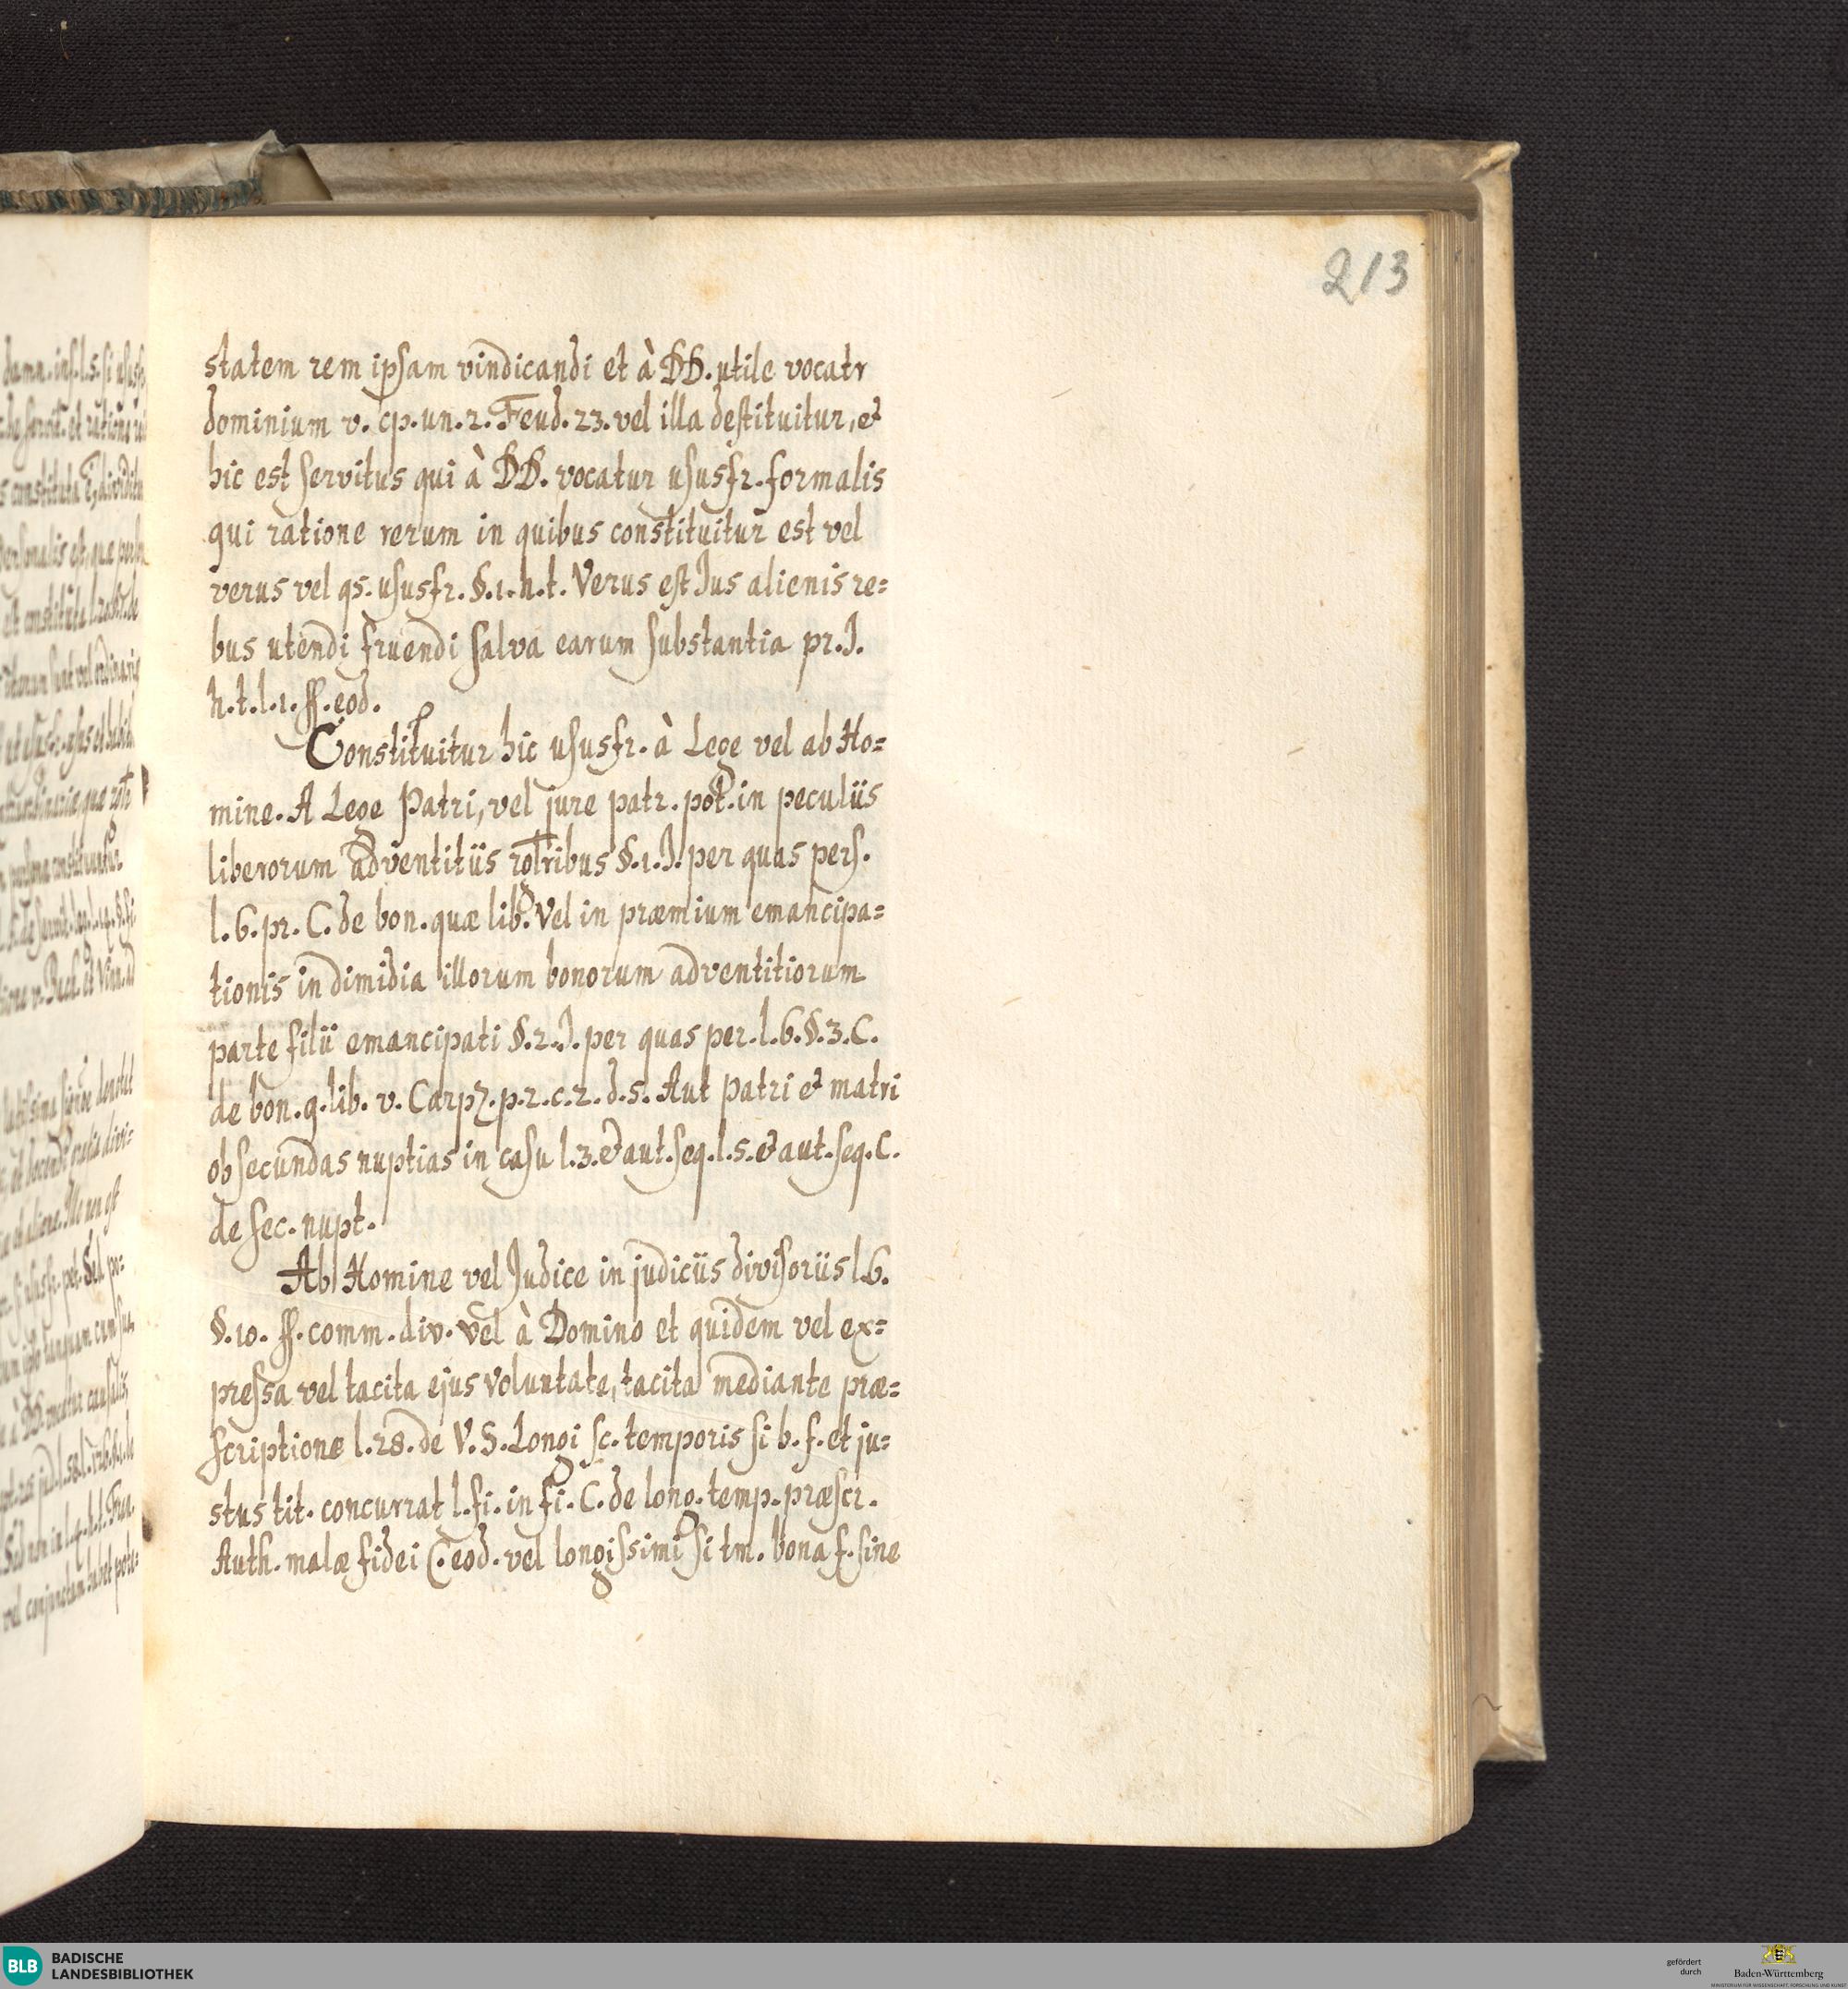 213
statem rem ipsam vindicandi et à DD. utile vocatr
dominium v. cp. un. 2. Feud. 23. vel illa destituitur, et
hic est servitus qui à DD. vocatur ususfr. formalis
qui ratione rerum in quibus constituitur est vel
verus vel qs. ususfr. §. 1. h. t. Verus est Jus alienis re=
bus utendi fruendi salva earum substantia pr. J.
h. t. l. 1. ff. eod.
Constituitur hic ususfr. à Lege vel ab Ho=
mine. A Lege Patri, vel jure patr. pot. in peculiis
liberorum adventitiis §. 1. J. per quas pers.
l. 6. pr. C. de bon. quæ lib. Vel in præmium emancipa=
tionis in dimidia illorum bonorum adventitiorum
parte filii emancipati §. 2. J. per quas per. l. 6. §. 3. C.
de bon. q. lib. v. Carpz. p. 2. c. 2. d. 5. Aut patri et matri
ob secundas nuptias in casu l. 3. et aut. seq. l. 5. et aut. seq. C.
de sec. nupt.
Ab Homine vel Judice in judiciis divisoriis l. 6.
§. 10. ff. comm. div. vel à Domino et quidem vel ex=
pressa vel tacita ejus voluntate, tacita mediante præ=
scriptione l. 28. de V. S. Longi sc. temporis si b. f. et ju=
stus tit. concurrat l. fi. in fi. C. de long. temp. præscr.
Auth. malæ fidei C. eod. vel longissimi si tm. bona f. sine
BLB BADISCHE
LANDESBIBLIOTHEK
gefördert
durch
Baden-Württemberg
MINISTERIUM FÜR WISSENSCHAFT, FORSCHUNG UND KUNST